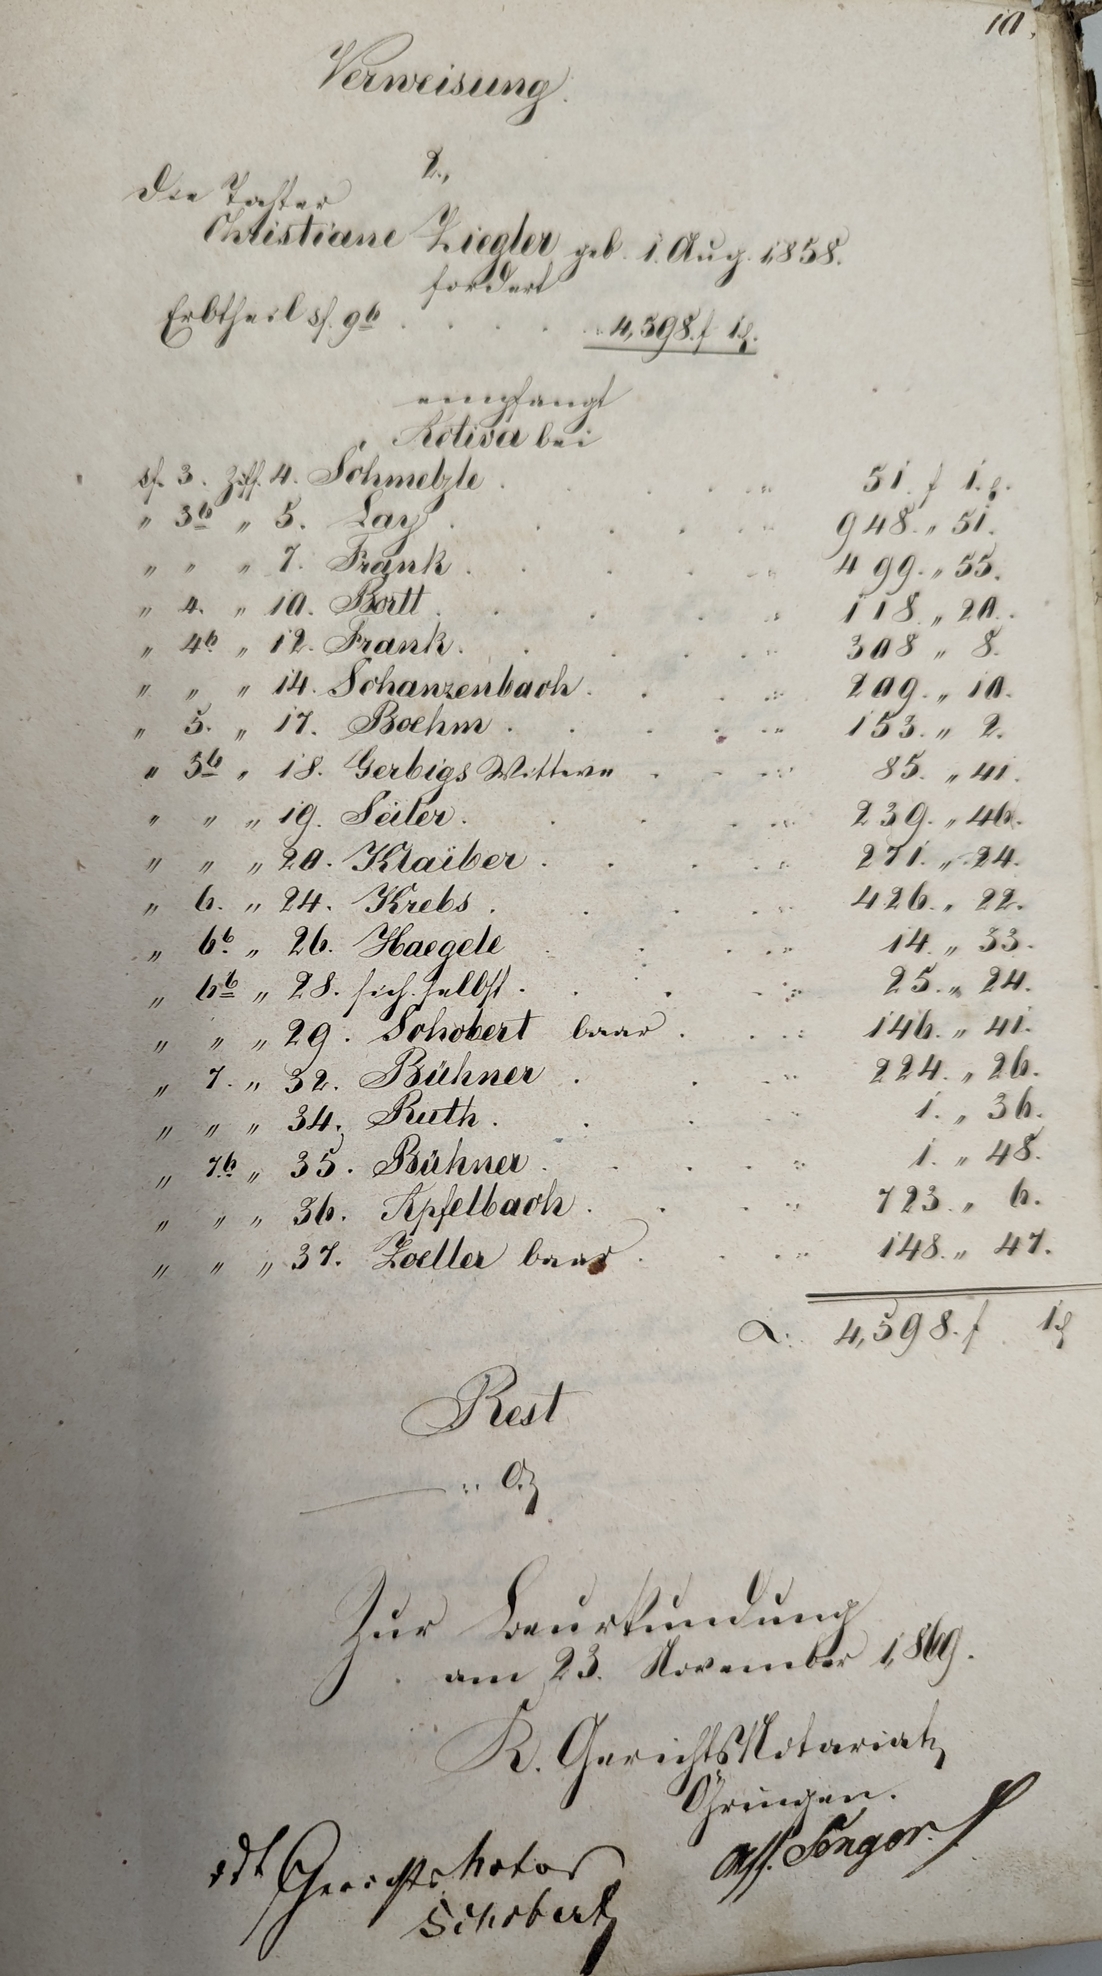 10.
Verweisung.
2.,
Die Tochter
Christiane Ziegler geb. 1. Aug. 1858.
fordert
Erbtheil sf. 9b . . . . . 4,598. f 1 x.
empfangt
Activa bei
sf. 3. Ziff. 4. Schmelzle . . . . 51. f 1. x.
" 3b " 5. Lay . . . . 948. " 51.
" " " 7. Frank . . . . 499. " 55.
" 4. " 10. Bortt . . . . 118. " 20.
" 4b " 12. Frank . . . . 308 " 8.
" " " 14. Schanzenbach . . . 209. " 10.
" 5. " 17. Boehm . . . . 153. " 2.
" 5b " 18. Gerbigs Wittwe . . . 85. " 41.
" " " 19. Seiler . . . . 239. " 46.
" " " 20. Klaiber . . . . 271. " 24.
" 6. " 24. Krebs . . . . 426. " 22.
" 6b. " 26. Haegele . . . . 14. " 33.
" 6b " 28. sich selbst . . . . 25. " 24.
" " " 29. Schobert baar . . . 146. " 41.
" 7. " 32. Bühner . . . 224. " 26.
" " " 34. Ruth . . . 1. " 36.
" 7b " 35. Bühner . . . . 1. " 48.
" " " 36. Apfelbach . . . . 723. " 6.
" " " 37. Zoeller baar . . . 148. " 47.
4,598. f 1 x
Rest
0.
Zur Beurkundung
am 23. November 1869.
K. GerichtsNotariat
Öhringen.
Ass. Songer.
vdt Gerichtsnotar
Schobert